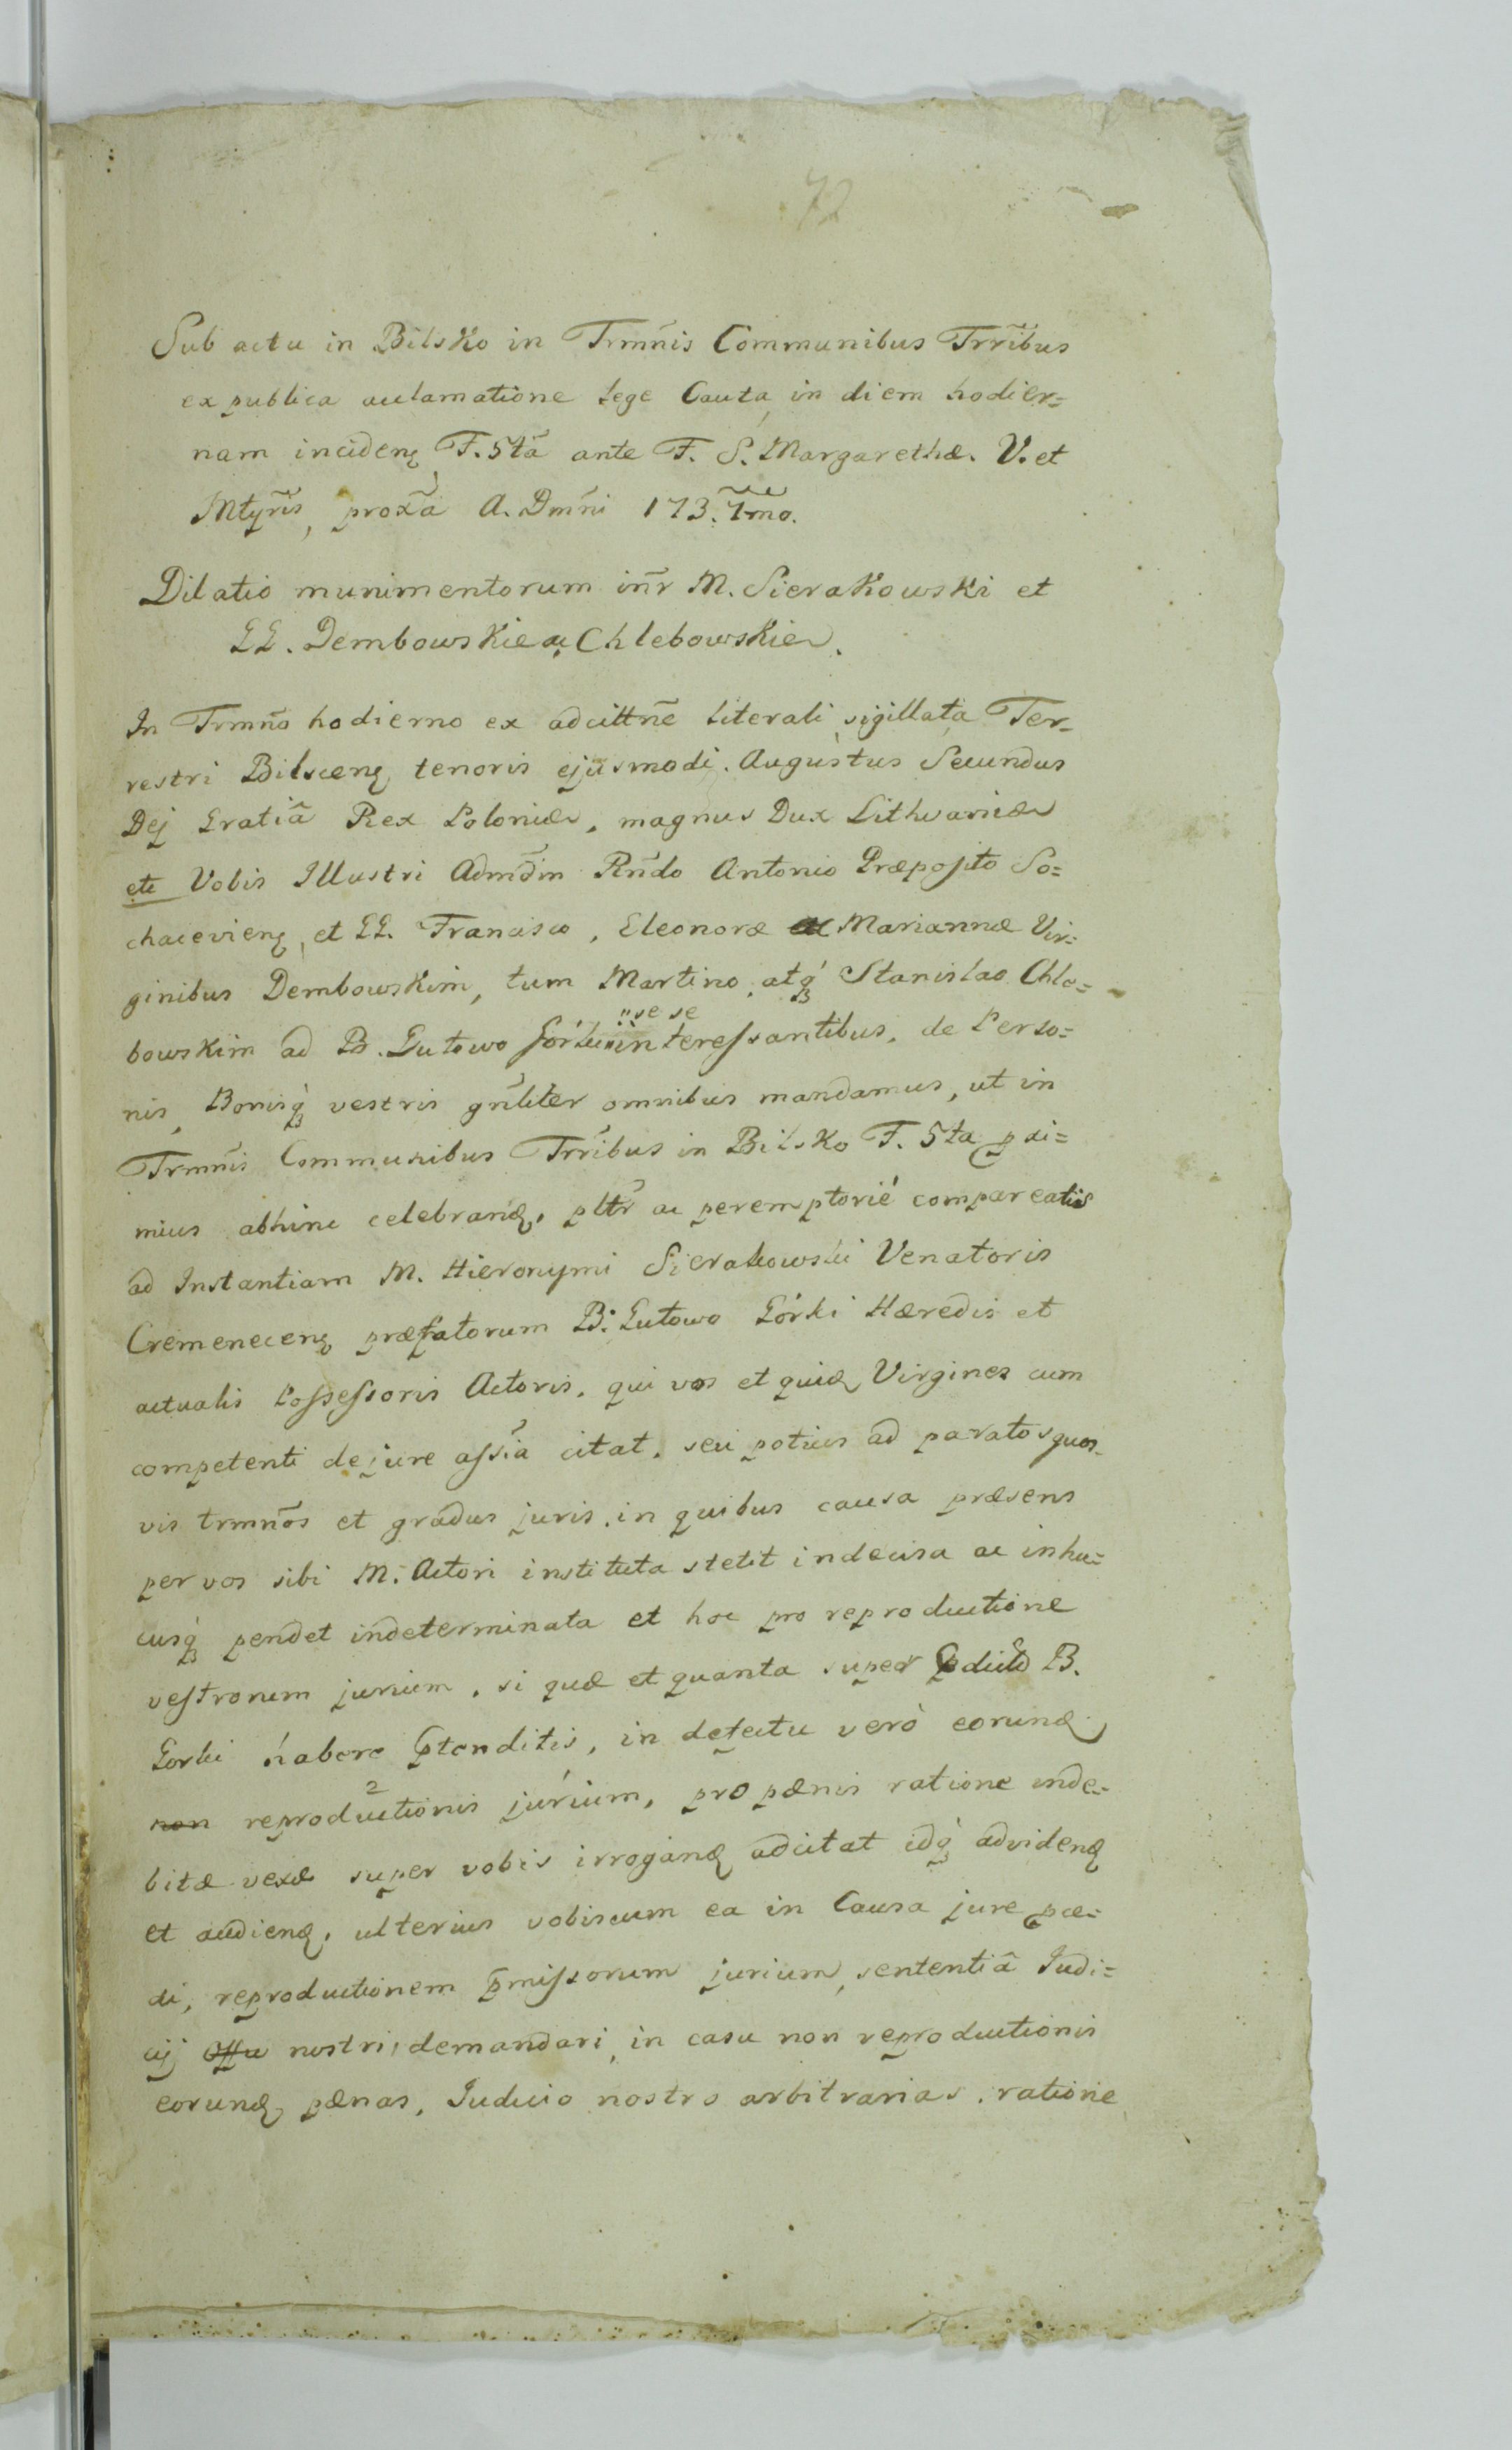 72
Sub actu in Bilsko in Trmñis Communibus Trr̃ibus
ex publica acclamatione lege Cauta, in diem hodier=
nam incidenꝫ F. 5tã ante F. S. Margarethæ. V. et
Mtyr̃is, prox̃a A. Dmñi 173.1mo.
Dilatio munimentorum iñr M. SieraKowsKi et
GG. DembowsKie ac ChlebowsKie.
In Trmño hodierno ex adcittñe literali sigillata Ter=
restri Bilscenꝫ tenoris ejusmodi. Augustus Secundus
Dej Gratiâ Rex Poloniæ, magnus Dux Lithvaniæ
etc Vobis Illustri Admd̃m Rñdo Antonio Præposito So=
chacevienꝫ, et GG. Francisco, Eleonoræ ac Mariannæ Vir=
ginibus DembowsKim, tum Martino, atqꝫ Stanislao Chle=
bowsKim ad B. Gutowo Górki
"se se
interessantibus, de Perso=
nis, Bonisqꝫ vestris gñliter omnibus mandamus, ut in
Trmñis Communibus Trr̃ibus in BilsKo F. 5ta pxi=
mius abhinc celebranꝺ, pltr̃ ac peremptorié compareatis
ad Instantiam M. Hieronymi Sierakowski Venatoris
Cremenecenꝫ præfatorum B: Gutowo Górki Hæredis et
actualis Possessoris Actoris. qui vos et quiꝺ Virgines cum
competenti de jure assĩa citat. seu potius ad paratos quos=
vis trmños et gradus juris. in quibus causa præsens
per vos sibi M. Actori instituta stetit indecisa ac inhu=
cusqꝫ pendet indeterminata et hoc pro reproductione
vestrorum jurium, si quæ et quanta super pdicto B.
Gorki habere ptenditis, in defectu verò eorunꝺ
non reproductionis jurium, pro pænis ratione inde=
2
bitæ vexæ super vobis irroganꝺ adcitat idqꝫ advidenꝺ
et audienꝺ, ulterius vobiscum ea in Causa jure pce=
di, reproductionem pmissorum jurium, sententiâ Judi=
cij nostri, demandari, in casu non reproductionis
eorunꝺ, pænas, Judicio nostro arbitrarias. ratione